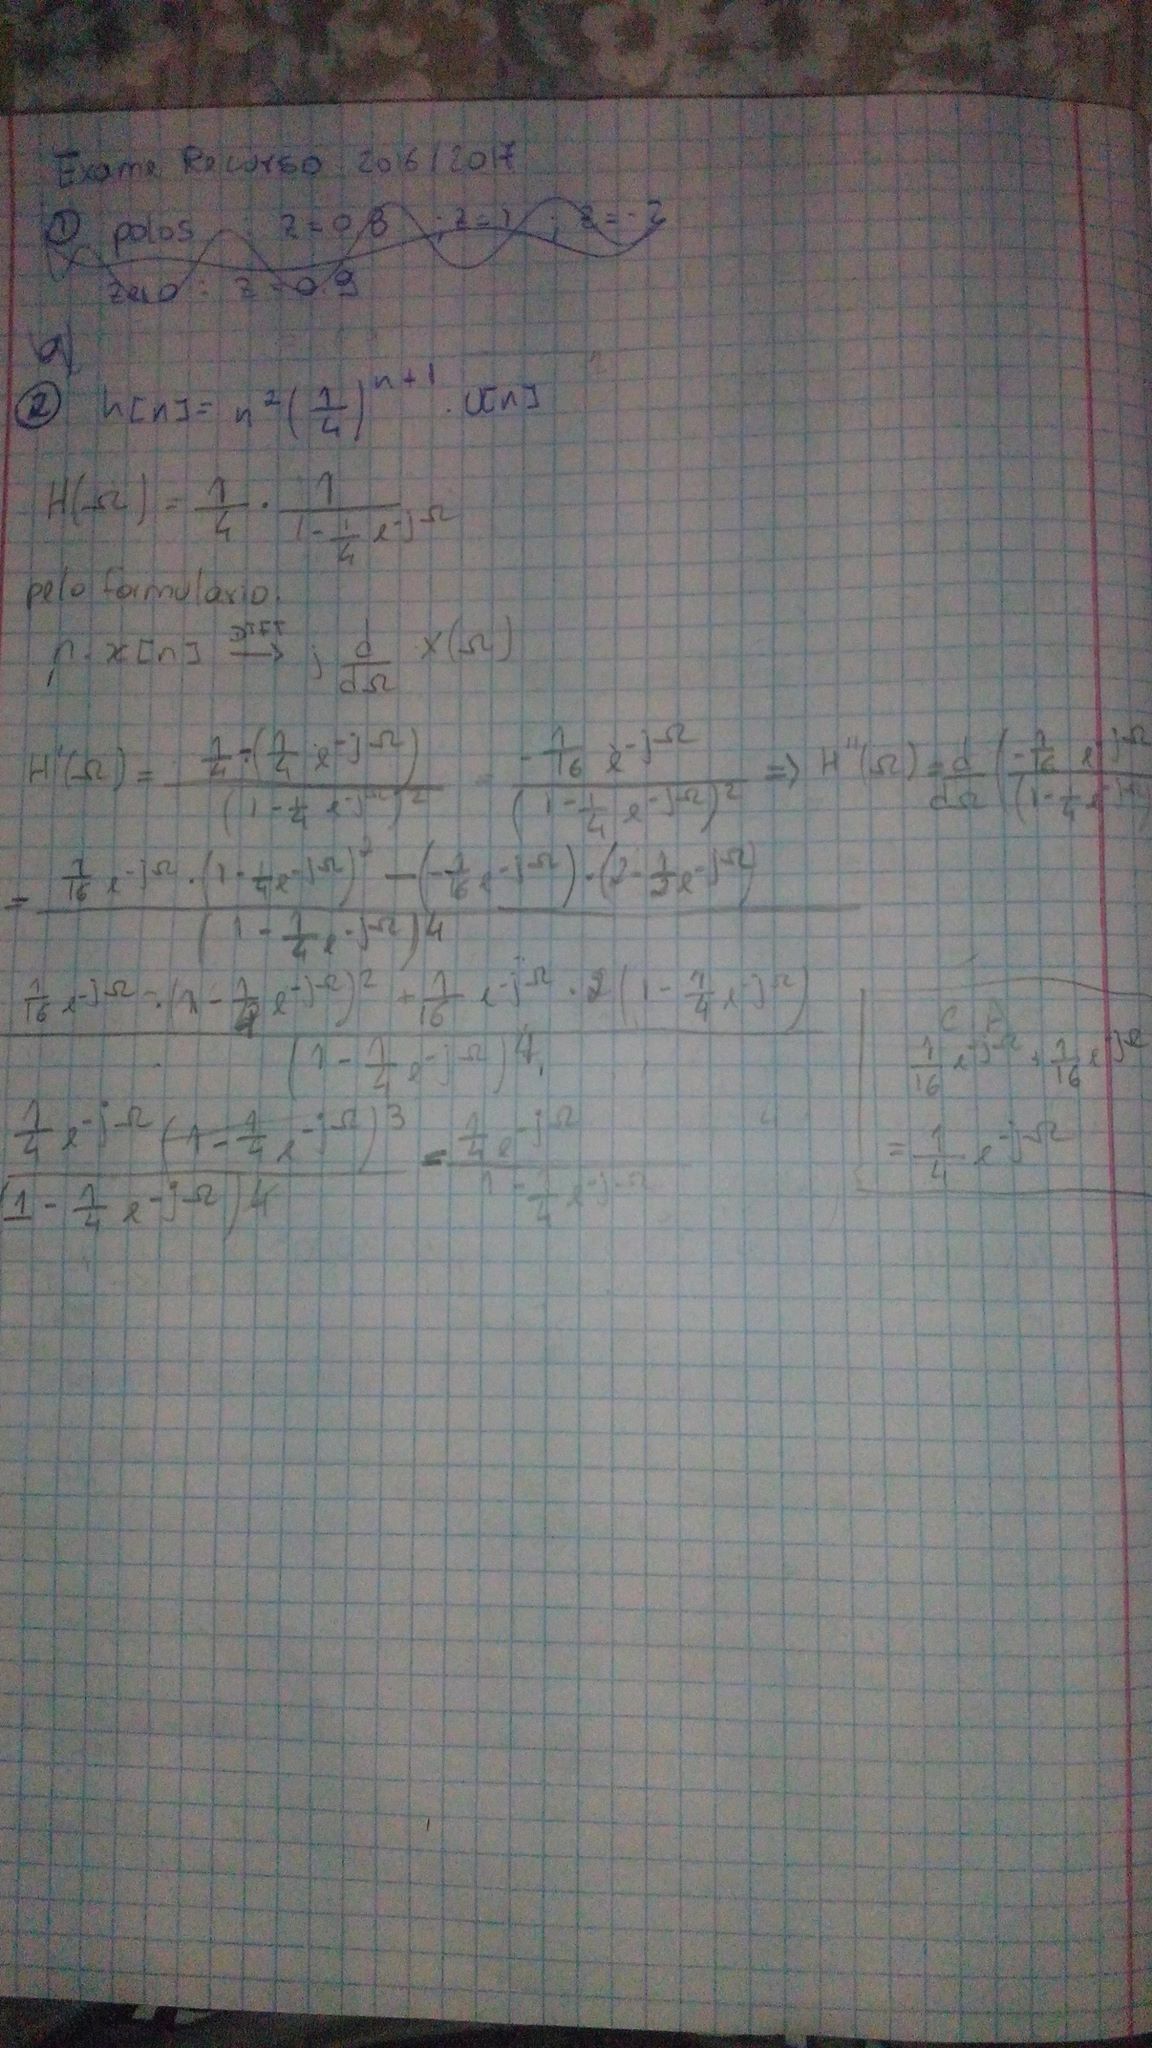 Exame Recurso 2016/2017
① polos : z = 0.8 ; z = 1 ; z = -2
zero : z = 0.9
a)
② h[n] = n² (1/4)^(n+1) . U[n]
H(Ω) = 1/4 · 1/(1 - 1/4 e^(-jΩ))
pelo formulario.
n . x[n] DTFT→ j d/dΩ X(Ω)
H'(Ω) = (1/4 · (1/4 e^(-jΩ)))/(1 - 1/4 e^(-jΩ))² = (-1/16 e^(-jΩ))/(1 - 1/4 e^(-jΩ))² => H''(Ω) = d/dΩ ((-1/16 e^(-jΩ))/(1 - 1/4 e^(-jΩ)
= (1/16 e^(-jΩ) · (1 - 1/4 e^(-jΩ))² - (-1/16 e^(-jΩ)) · (2 - 1/2 e^(-jΩ)))/(1 - 1/4 e^(-jΩ))⁴
(1/16 e^(-jΩ) · (1 - 1/4 e^(-jΩ))² + 1/16 e^(-jΩ) · 2(1 - 1/4 e^(-jΩ)))/(1 - 1/4 e^(-jΩ))⁴
(1/4 e^(-jΩ) (1 - 1/4 e^(-jΩ))³)/(1 - 1/4 e^(-jΩ))⁴ = (1/4 e^(-jΩ))/(1 - 1/4 e^(-jΩ))
C A
1/16 e^(-jΩ) + 1/16 e^(-jΩ)
= 1/4 e^(-jΩ)